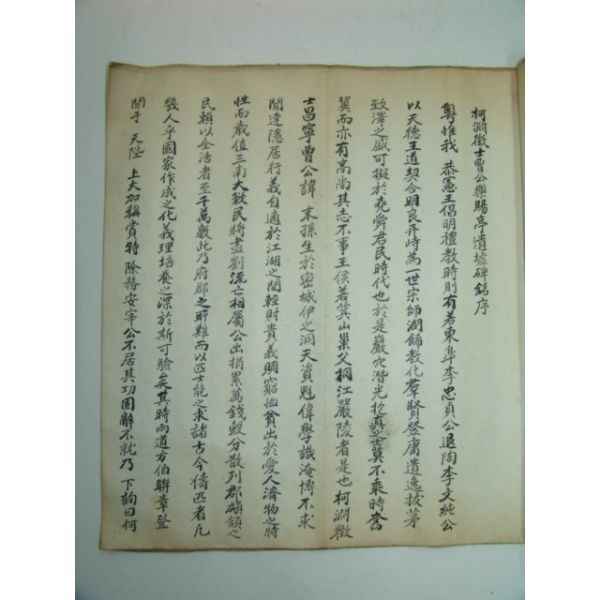 柯淵徵士曺公樂賜亭遺墟碑銘序
粤惟我 恭憲王倡明禮敎時則有若東皐李忠貞公退陶李文純公
以天德王道契合明良幷時爲一世宗師潤餙敎化羣賢登庸遺逸拔茅
致澤之盛可擬於堯舜君民時代也於是巖穴潛光抱噐之士莫不乘時奮
翼而亦有高尚其志不事王侯若箕山巢父桐江嚴陵者是也柯淵徵
士昌寧曺公諱 末孫生於密城伊之洞天資魁偉學識淹博不求
聞達隱居行義自適於江湖之間輕財貴義賙窮恤貧出於愛人濟物之將
性而歲値三南大歉民將盡劉流亡相屬公出捐累萬錢穀分散列郡顑頷之
民賴以全活者至千萬數此乃府郡之所難而以匹士能之求諸古今儔匹者凡
幾人乎國家作成之化義理培養之深於斯可驗矣其時兩道方伯聯章登
聞于 天陛 上大加稱賞特 除務安宰公不居其功固辭不就乃 下詢曰何